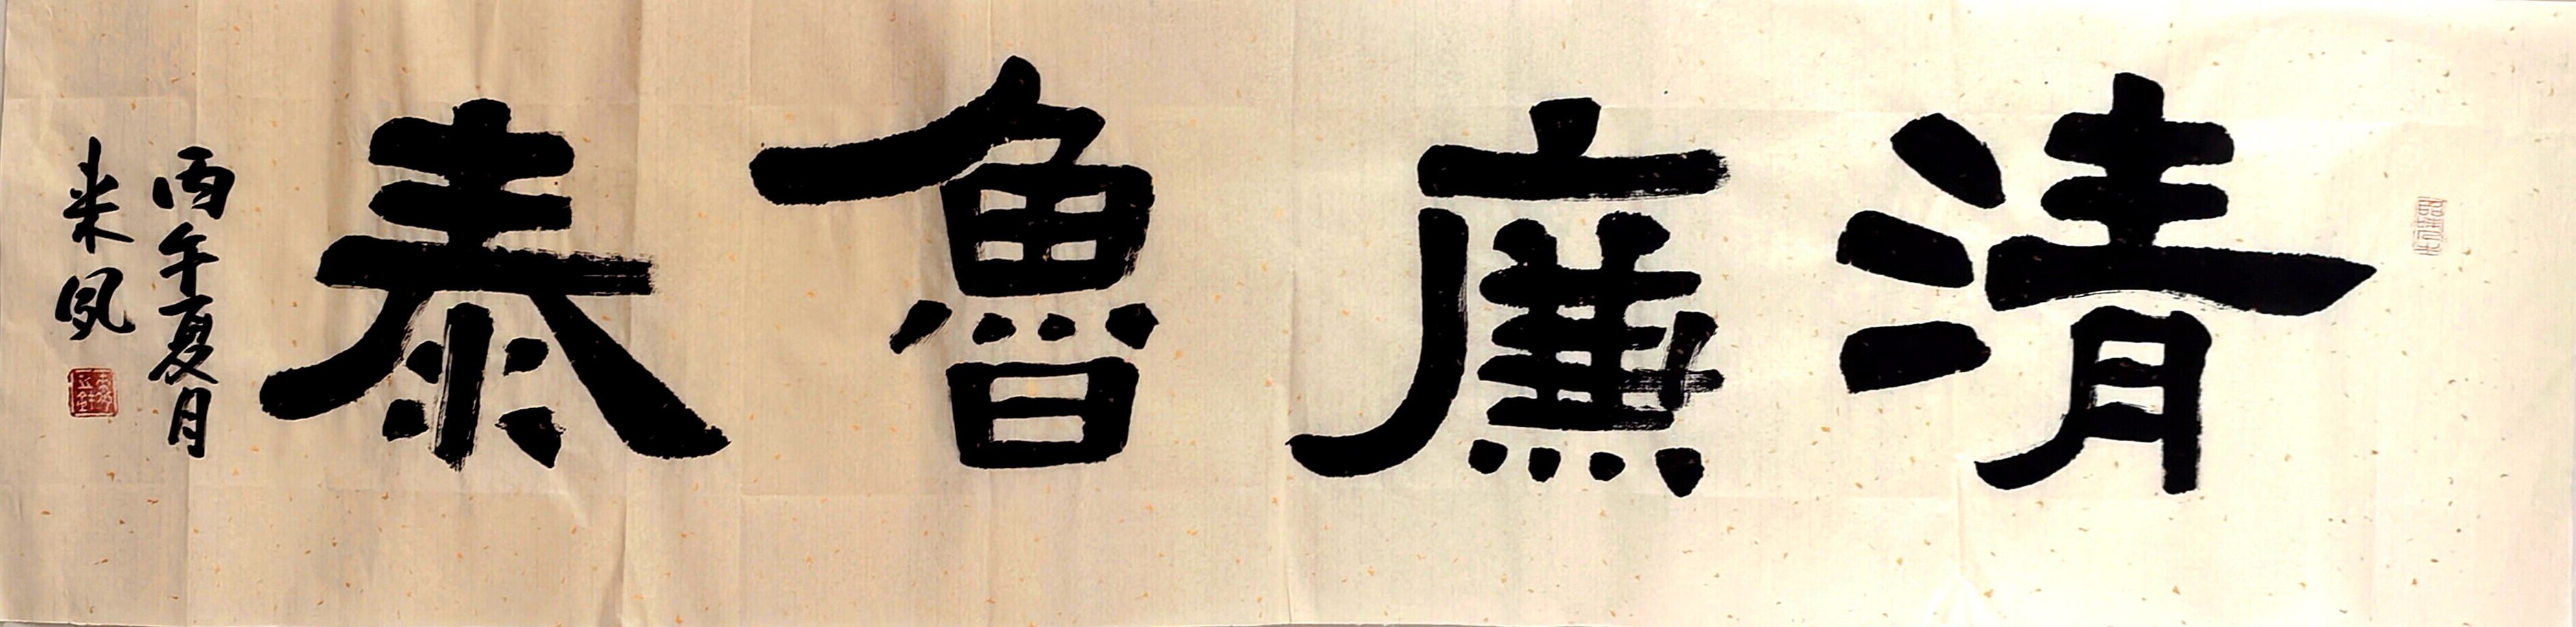 清廉魯泰
丙午夏月
来夙